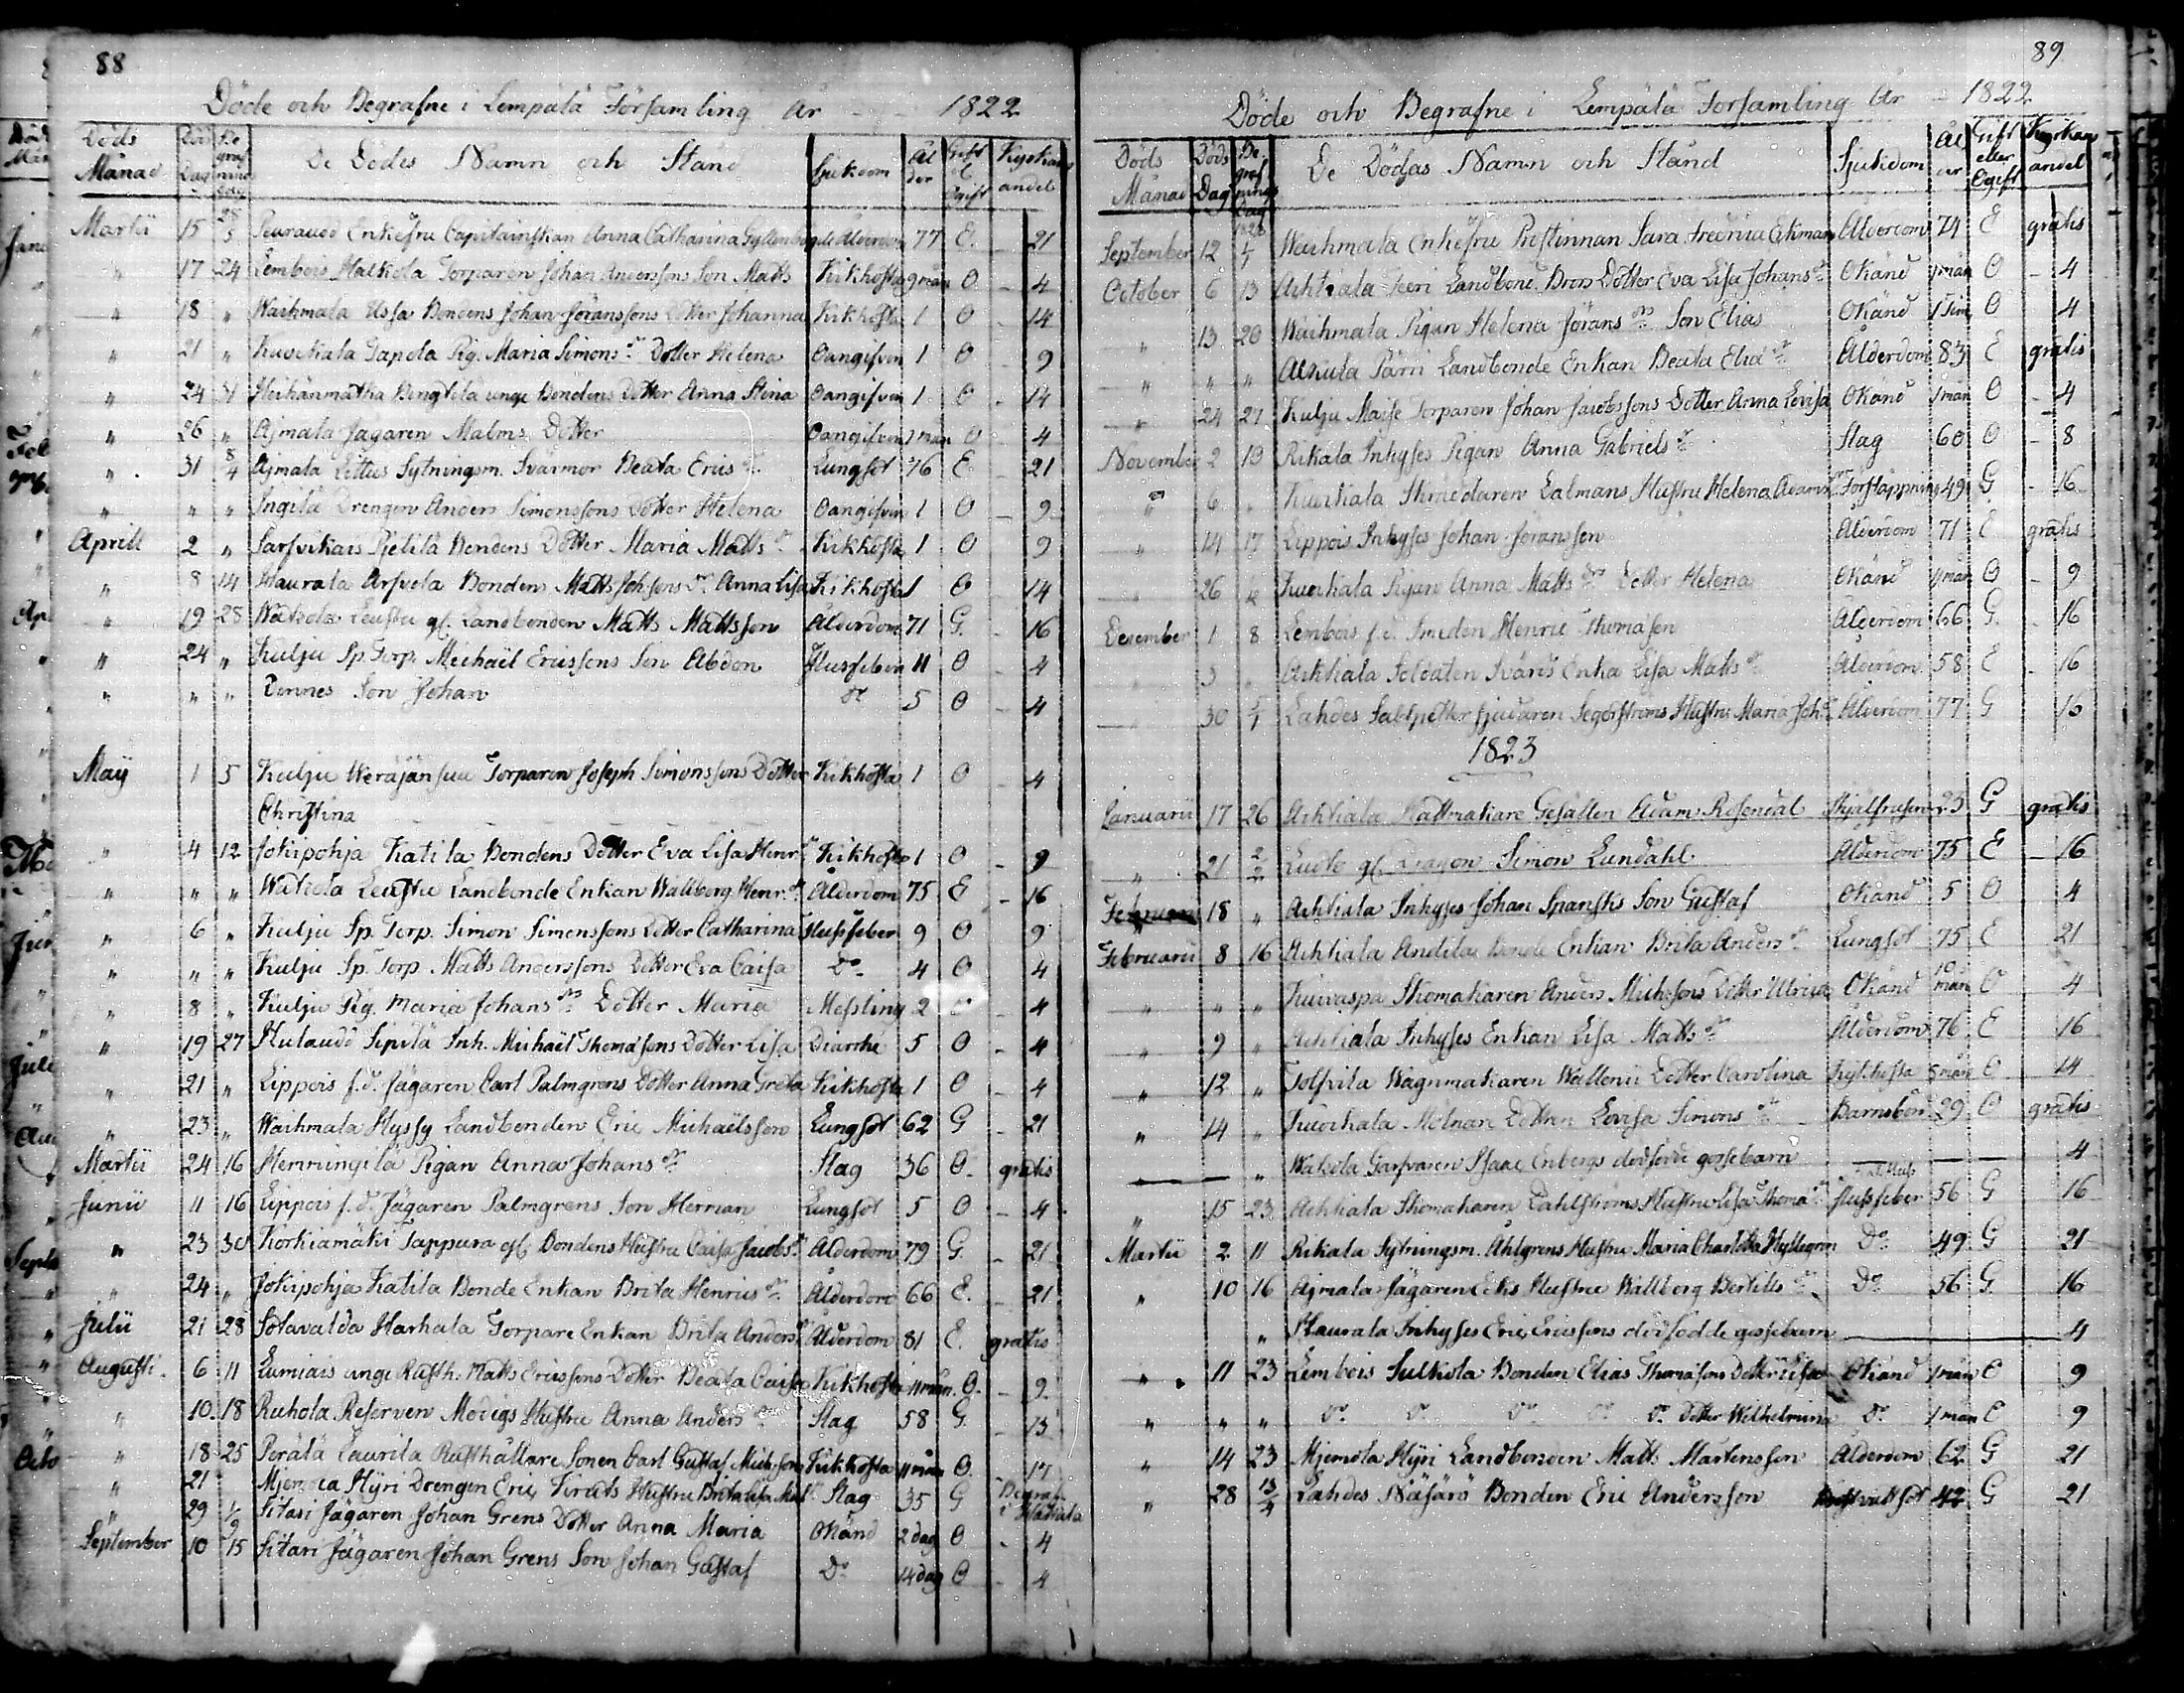 88
Döde och Begrafne i Lempälä Församling År 1822
Döds Månad Döds Dag Begrafnings dag De Dödes Namn och Stånd Sjukdom Ålder Gift el. Ogift Kyrkans andel
Martii 15 28/3 Peuraudd Enkefru Capitainskan Anna Catharina Ålderdom 77 E. 21
" 17 24 Lembois Halkola Torparen Johan Anderssons Son Matts Kikhosta 9 mån O 4
" 18 " Waihmala Ussa Bondens Johan Joranssons Dotter Johanna Kikhosta 1 O 14
" 21 " Kuokkala Tapola Pig. Maria Simons dr Dotter Helena Oangifven 1 O 9
" 24 31 Herhänmatka Bengtilä unge Bondens Dotter Anna Stina Oangifven 1 O 14
" 26 " Ajmala Jägaren Malms Dotter Oangifven 1 mån O 4
" 31 8/4 Ajmala Eittus Sytningsm. Svärmor Beata Erics dr Lungsot 76 E. 21
" " " Ingilä Drengen Anders Simonssons Dotter Helena Oangifven 1 O 9
Aprill 2 " Sarfvikais Pietilä Bondens Dotter Maria Matts dr Kikhosta 1 O 9
" 8 14 Haurala Arfvola Bonden Matts Johssons Dr Anna Lisa Kikhosta 1 O 14
" 19 28 Wakola Leustu gl. Landbonden Matts Mattsson Ålderdom 71 G. 16
" 24 " Kulju Sp. Torp. Michaël Ericssons Son Abdon Flussfeber 11 O 4
" " " Dennes Son Johan do 5 O 4
Maij 1 5 Kulju Weräjänsuu Torparen Joseph Simonssons Dotter Kikhosta 1 O 4
Christina
" 4 12 Jokipohja Katila Bondens Dotter Eva Lisa Henr. dr Kikhosta 1 O 9
" " " Wakola Leustu Landbonde Enkan Wallborg Henr. dr Ålderdom 75 E 16
" 6 " Kulju Sp. Torp. Simon Simonssons Dotter Catharina Flussfeber 9 O 9
" " " Kulju Sp. Torp. Matts Anderssons Dotter Eva Caisa Do 4 O 4
" 8 " Kulju Pig. Maria Johans drs Dotter Maria Messling 2 O 4
" 19 27 Hulaudd Sipilä Inh. Michaël Thomasons Dotter Lisa Diarrhe 5 O 4
" 21 " Lippois f.d. Jägaren Carl Palmgrens Dotter Anna Greta Kikhosta 1 O 4
" 23 " Waihmala Hyssy Landbonden Eric Michaëlsson Lungsot 62 G 21
Martii 24 16 Hemmingilä Pigan Anna Johans dr Slag 36 O. gratis
Junii 11 16 Lippois f.d. Jägaren Palmgrens Son Herman Lungsot 5 O 4
" 23 30 Korkiamäki Tappura gl. Bondens Hustru Caisa Jacobs dr Ålderdom 79 G. 21
" 24 " Jokipohja Katila Bonde Enkan Brita Henrics dr Ålderdom 66 E. 21
Julii 21 28 Sotavalda Harhala Torpare Enkan Brita Anders dr Ålderdom 81 E. gratis
Augusti 6 11 Lumiais unge Rusth. Matts Ericssons Dotter Beata Caisa Kikhosta 11 mån. O. 9
" 10 18 Ruhola Reserven Modigs Hustru Anna Anders dr Slag 58 G. 13
" 18 25 Perälä Laurila Rusthållare Sonen Carl Gustaf Mich:son Kikhosta 11 mån O. 17
" 21 Hyri Drengen Eric Hustru Brita Lisa Slag 35 G Begraf. i
" 29 1/9 Sitari Jägaren Johan Grens Dotter Anna Maria Okänd 2 dag O 4
September 10 15 Sitari Jägaren Johan Grens Son Johan Gustaf Do 14 dag O 4
89
Döde och Begrafne i Lempälä Forsamling År 1822
Döds Månad Döds Dag Begrafnings Dag De Dödas Namn och Stånd Sjukdom Ålder Gift eller Ogift Kyrkans andel
September 12 Waihmala Enkefru Prestinnan Sara Ekman Ålderdom 74 E gratis
October 6 13 Ahtiala Teeri Landbond. Brors Dotter Eva Lisa Johans dr Okänd 1 mån O 4
" 13 20 Waihmala Pigan Helena Jörans drs Son Elias Okänd 1 tim O 4
" " " Alkula Pärri Landbonde Enkan Beata Eliæ dr Ålderdom 83 E gratis
" 24 27 Kulju Maise Torparen Johan Jacobssons Dotter Anna Lovisa Okänd 1 mån O 4
November 2 10 Rikala Inhyses Pigan Anna Gabriels dr Slag 60 O 8
" 6 " Kuokkala Skräddaren Dalmans Hustru Helena Adams dr Forstoppning 49 G 16
" 14 17 Lippois Inhyses Johan Joransson Ålderdom 71 E gratis
" 26 Kuokkala Pigan Anna Matts drs Dotter Helena Okänd mån O 9
December 1 8 Lembois f.d. Smeden Henric Thomasson Ålderdom 66 G. 16
" 3 " Ahtiala Soldaten Svärds Enka Lisa Matts dr Ålderdom 58 E 16
" 30 5/1 Lahdes Saltpetter sjudaren Segerströms Hustru Maria Joh. dr Ålderdom 77 G 16
1823
Januarii 17 26 Ahtiala Hattmakare Gesällen Adam Rosendal Ihjälfrusen 23 G gratis
" 21 2/2 Kuote gl. Dragon Simon Lundahl. Ålderdom 75 E 16
18 " Ahtiala Inhyses Johan Spansks Son Gustaf Okänd 5 O 4
Februarii 8 16 Ahtiala Anttila Bonde Enkan Brita Anders dr Lungsot 75 E 21
" " " Kuivaspä Skomakaren Anders Michssons Dotter Ulrica Okänd 10 mån O 4
" 9 " Ahtiala Inhyses Enkan Lisa Matts dr Ålderdom 76 E 16
" 12 " Tolfvila Wagnmakaren Wallenii Dotter Carolina Kikhosta 5 mån O 14
" 14 " Kuokkala Mölnare Dottren Lovisa Simons dr Barnsbörd 29 O gratis
" Wakola Garfvaren Isaac Enbergs dödfödde gossebarn 4
" 15 23 Ahtiala Skomakaren Dahlströms Hustru Lisa Thoma dr Flussfeber 56 G 16
Martii 2 11 Rikala Sytningsm. Åhlgrens Hustru Maria Charlotta Do 49 G 21
" 10 16 Ajmala Jägaren Eeks Hustru Wallborg Bertills dr Do 56 G. 16
" Haurala Inhyses Eric Ericssons dödfödde gossebarn 4
" 11 23 Lembois Sulkola Bonden Elias Thomassons Dotter Lisa Okänd 1 mån E 9
" " " do do do do do Dotter Wilhelmina Do 1 mån E 9
" 14 23 Mjemola Hyri Landbonden Matts Mårtensson Ålderdom 62 G 21
" 28 13/4 Lahdes Näsärö Bonden Eric Andersson 42 G 21